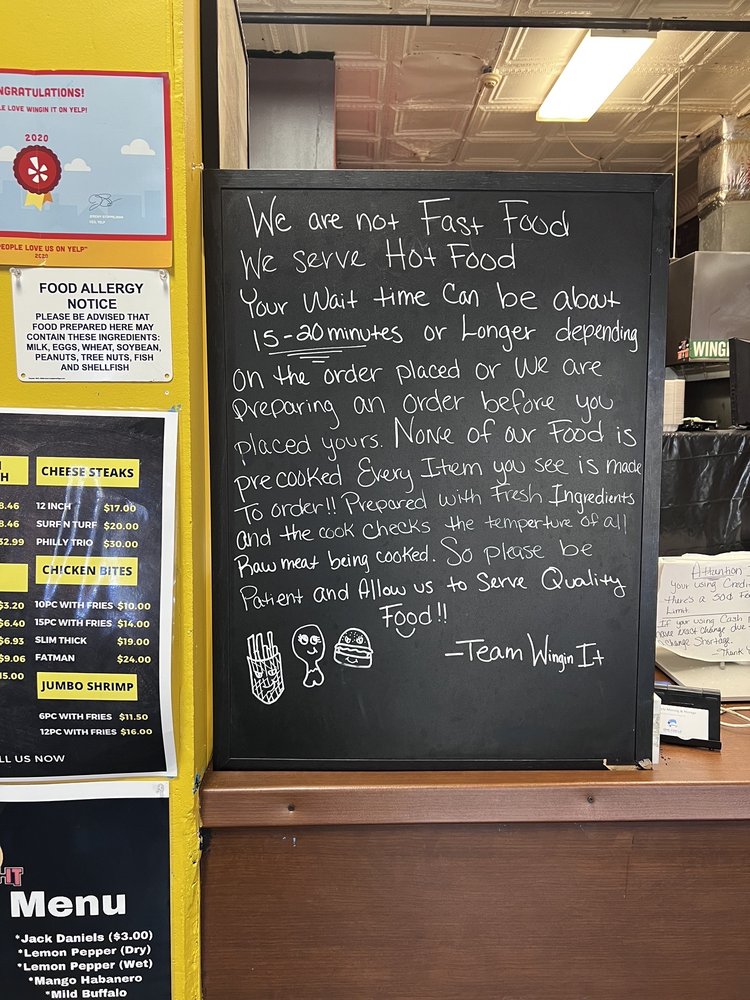 NGRATULATIONS!
LE LOVE WINGIN IT ON YELP!
2020
JEREMY STOPPELMAN
CEO, YELP
PEOPLE LOVE US ON YELP"
2020
FOOD ALLERGY
NOTICE
PLEASE BE ADVISED THAT
FOOD PREPARED HERE MAY
CONTAIN THESE INGREDIENTS:
MILK, EGGS, WHEAT, SOYBEAN,
PEANUTS, TREE NUTS, FISH
AND SHELLFISH
H
8.46
8.46
32.99
CHEESE STEAKS
12 INCH $17.00
SURF N TURF $20.00
PHILLY TRIO $30.00
CHICKEN BITES
3.20
6.40
6.93
9.06
15.00
10PC WITH FRIES $10.00
15PC WITH FRIES $14.00
SLIM THICK $19.00
FATMAN $24.00
JUMBO SHRIMP
6PC WITH FRIES $11.50
12PC WITH FRIES $16.00
LL US NOW
IT
Menu
*Jack Daniels ($3.00)
*Lemon Pepper (Dry)
*Lemon Pepper (Wet)
*Mango Habanero
*Mild Buffalo
We are not Fast Food
We serve Hot Food
Your Wait time Can be about
15-20 minutes or Longer depending
on the order placed or We are
preparing an order before you
placed yours. None of our Food is
precooked Every Item you see is made
To order!! Prepared with Fresh Ingredients
and the cook checks the temperture of all
Raw meat being cooked. So please be
Patient and Allow us to Serve Quality
Food!!
-Team Wingin It
WINGI
Attention
Your using Credi
there's a 50¢ Fe
Limit.
If your using Cash
have exact change due
Change Shortage.
-Thank Y